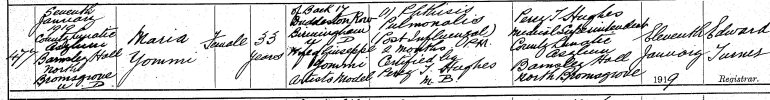 477
Seventh
January
1919
County Lunatic
Asylum
Barnsley Hall
North
Bromsgrove
U D
Maria
Yommi
Female
33
years
of Back 17
Buddeston Row
Birmingham
U D
Wife of Giuseppe
Yommi
Artists Model
a) Phthisis
Pulmonalis
(Post Influenzal)
2 months P.M.
Certified by
Percy T. Hughes
M B
Percy T Hughes
Medical Superintendent
County Lunatic
Asylum
Barnsley Hall
North Bromsgrove
Eleventh
January
1919
Edward
Turner
Registrar.